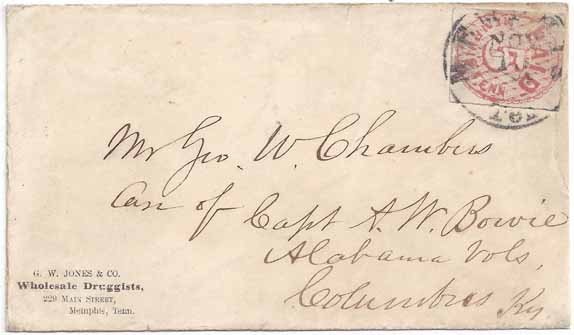 PAID
TENN
NOV
Mr Geo. W. Chambers
Care of Capt A. W. Bowie
Alabama Vols,
Columbus Ky
G. W. JONES & CO.
Wholesale Druggists,
229 MAIN STREET,
Memphis, Tenn.